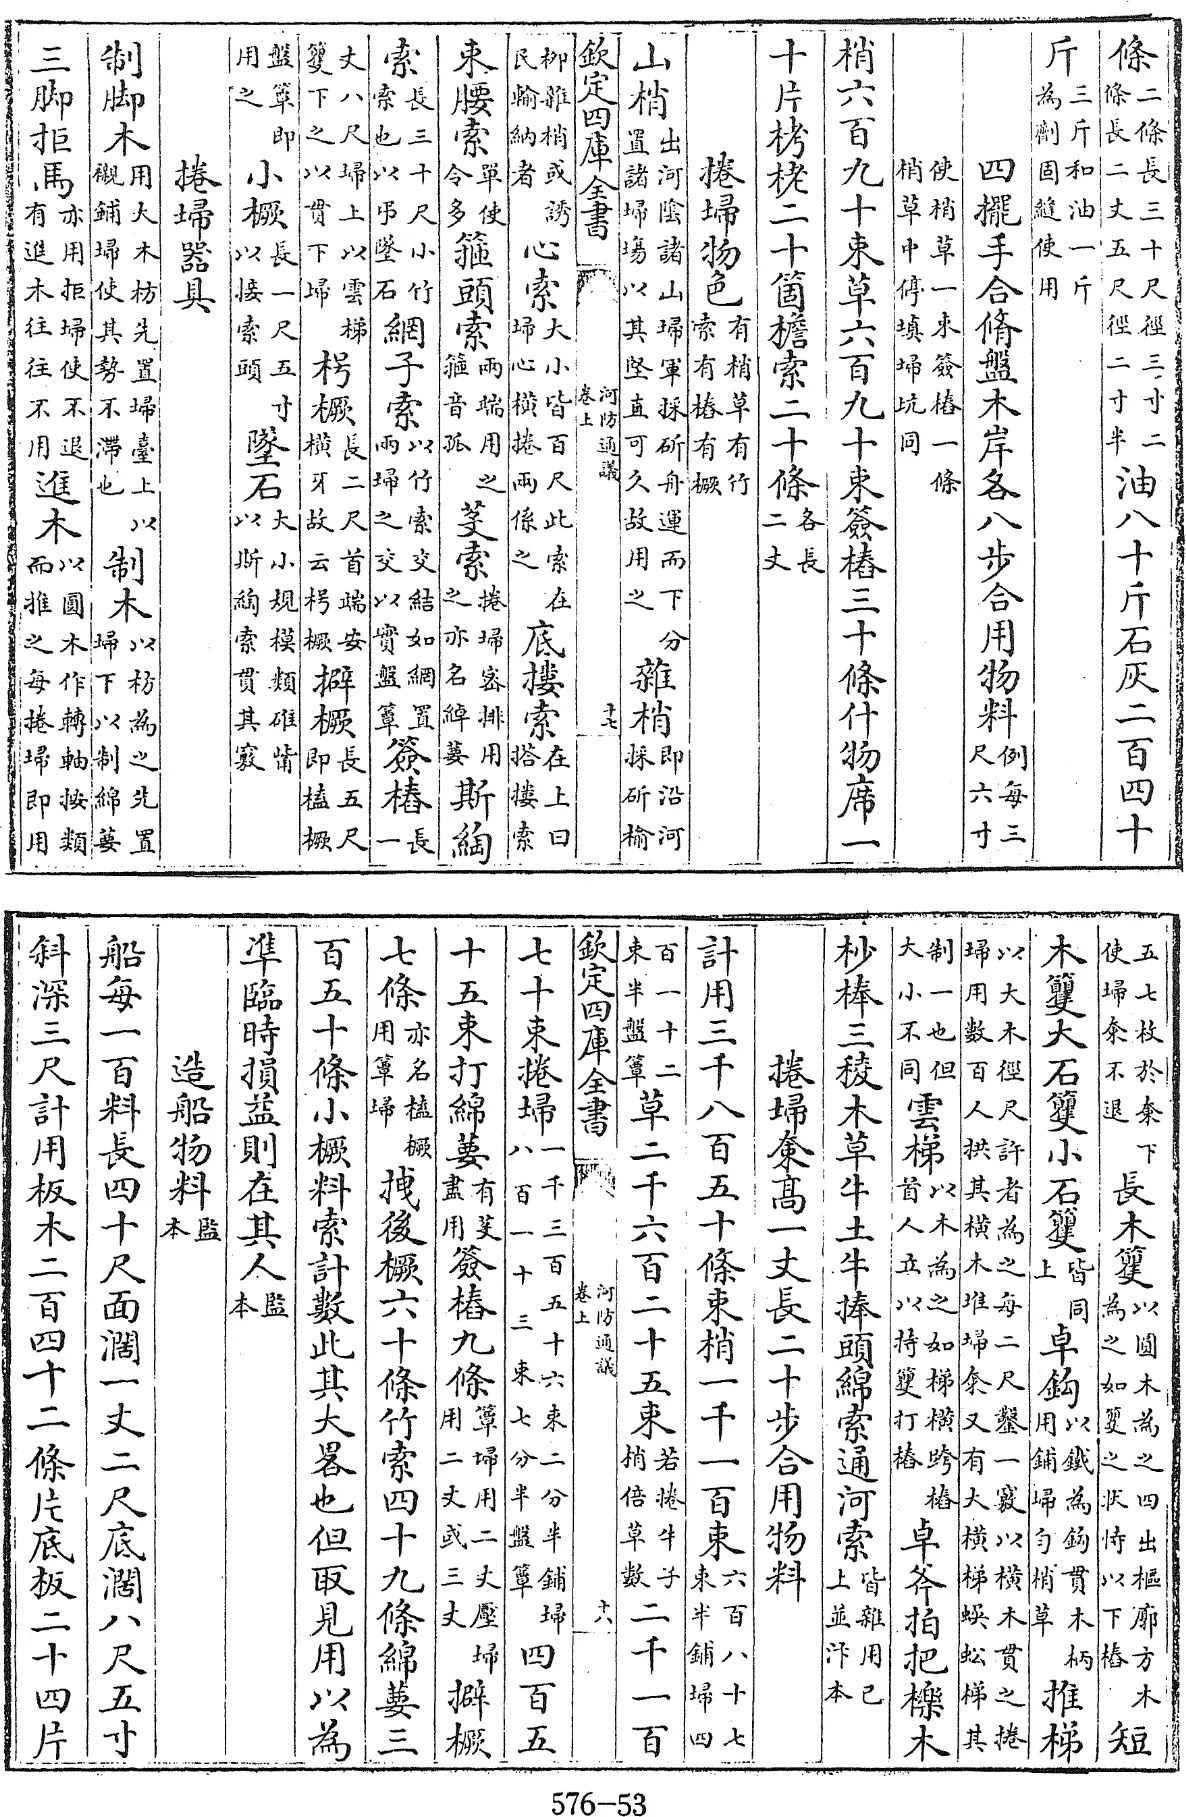 條二條長三十尺徑三寸二條長二丈五尺徑二寸半油八十斤石灰二百四十
斤三斤和油一斤為劑固縫使用
四擺手合脩盤木岸各八步合用物料例每三尺六寸
使梢草一束簽樁一條梢草中停填埽坑同
梢六百九十束草六百九十束簽樁三十條什物席一
十片栲栳二十箇檐索二十條各長二丈
捲埽物色有梢草有竹索有樁有橛
山梢出河陰諸山埽軍採斫舟運而下分置諸埽場以其堅直可久故用之雜梢即沿河採斫榆
欽定四庫全書 河防通議卷上 十七
柳雜梢或誘民輸納者心索大小皆百尺此索在埽心橫捲兩係之底摟索在上曰搭摟索
束腰索單使令多箍頭索兩端用之箍音孤芟索捲埽密排用之亦名綽蔞斯綯
索長三十尺小竹索也以吊墜石網子索以竹索交結如網置兩埽之交以實盤簟簽樁長一
丈八尺埽上以雲梯籰下之以貫下埽枵橛長二尺首端安橫牙故云枵橛擗橛長五尺即榼橛
盤簟即用之小橛長一尺五寸以接索頭墜石大小規模類碓觜以斯綯索貫其竅
捲埽器具
制脚木用大木枋先置埽臺上以襯鋪埽使其勢不滯也制木以枋為之先置埽下以制綿蔞
三脚拒馬亦用拒埽使不退有進木往往不用進木以圓木作轉軸按類而推之每捲埽即用
五七枚於㭐下使埽㭐不退長木籰以圓木為之四出樞廓方木為之如籰之狀恃以下樁短
木籰大石籰小石籰皆同上卓鈎以鐵為鈎貫木柄用鋪埽勻梢草推梯
以大木徑尺許者為之每二尺鑿一竅以橫木貫之捲埽用數百人拱其橫木堆埽㭐又有大橫梯蜈蚣梯其
制一也但大小不同雲梯以木為之如梯橫跨樁首人立以持籰打樁卓斧拍把櫟木
杪棒三稜木草牛土牛捧頭綿索通河索皆雜用已上並汴本
捲埽㭐高一丈長二十步合用物料
計用三千八百五十條束梢一千一百束六百八十七束半鋪埽四
百一十二束半盤簟草二千六百二十五束若捲牛子梢倍草數二千一百
欽定四庫全書 河防通議卷上 十八
七十束捲埽一千三百五十六束二分半鋪埽八百一十三束七分半盤簟四百五
十五束打綿蔞有芟盡用簽樁九條簟埽用二丈壓埽用二丈或三丈擗橛
七條亦名榼橛用簟埽拽後橛六十條竹索四十九條綿蔞三
百五十條小橛料索計數此其大畧也但取見用以為
準臨時損益則在其人監本
造船物料監本
船每一百料長四十尺面濶一丈二尺底濶八尺五寸
斜深三尺計用板木二百四十二條片底板二十四片
576-53